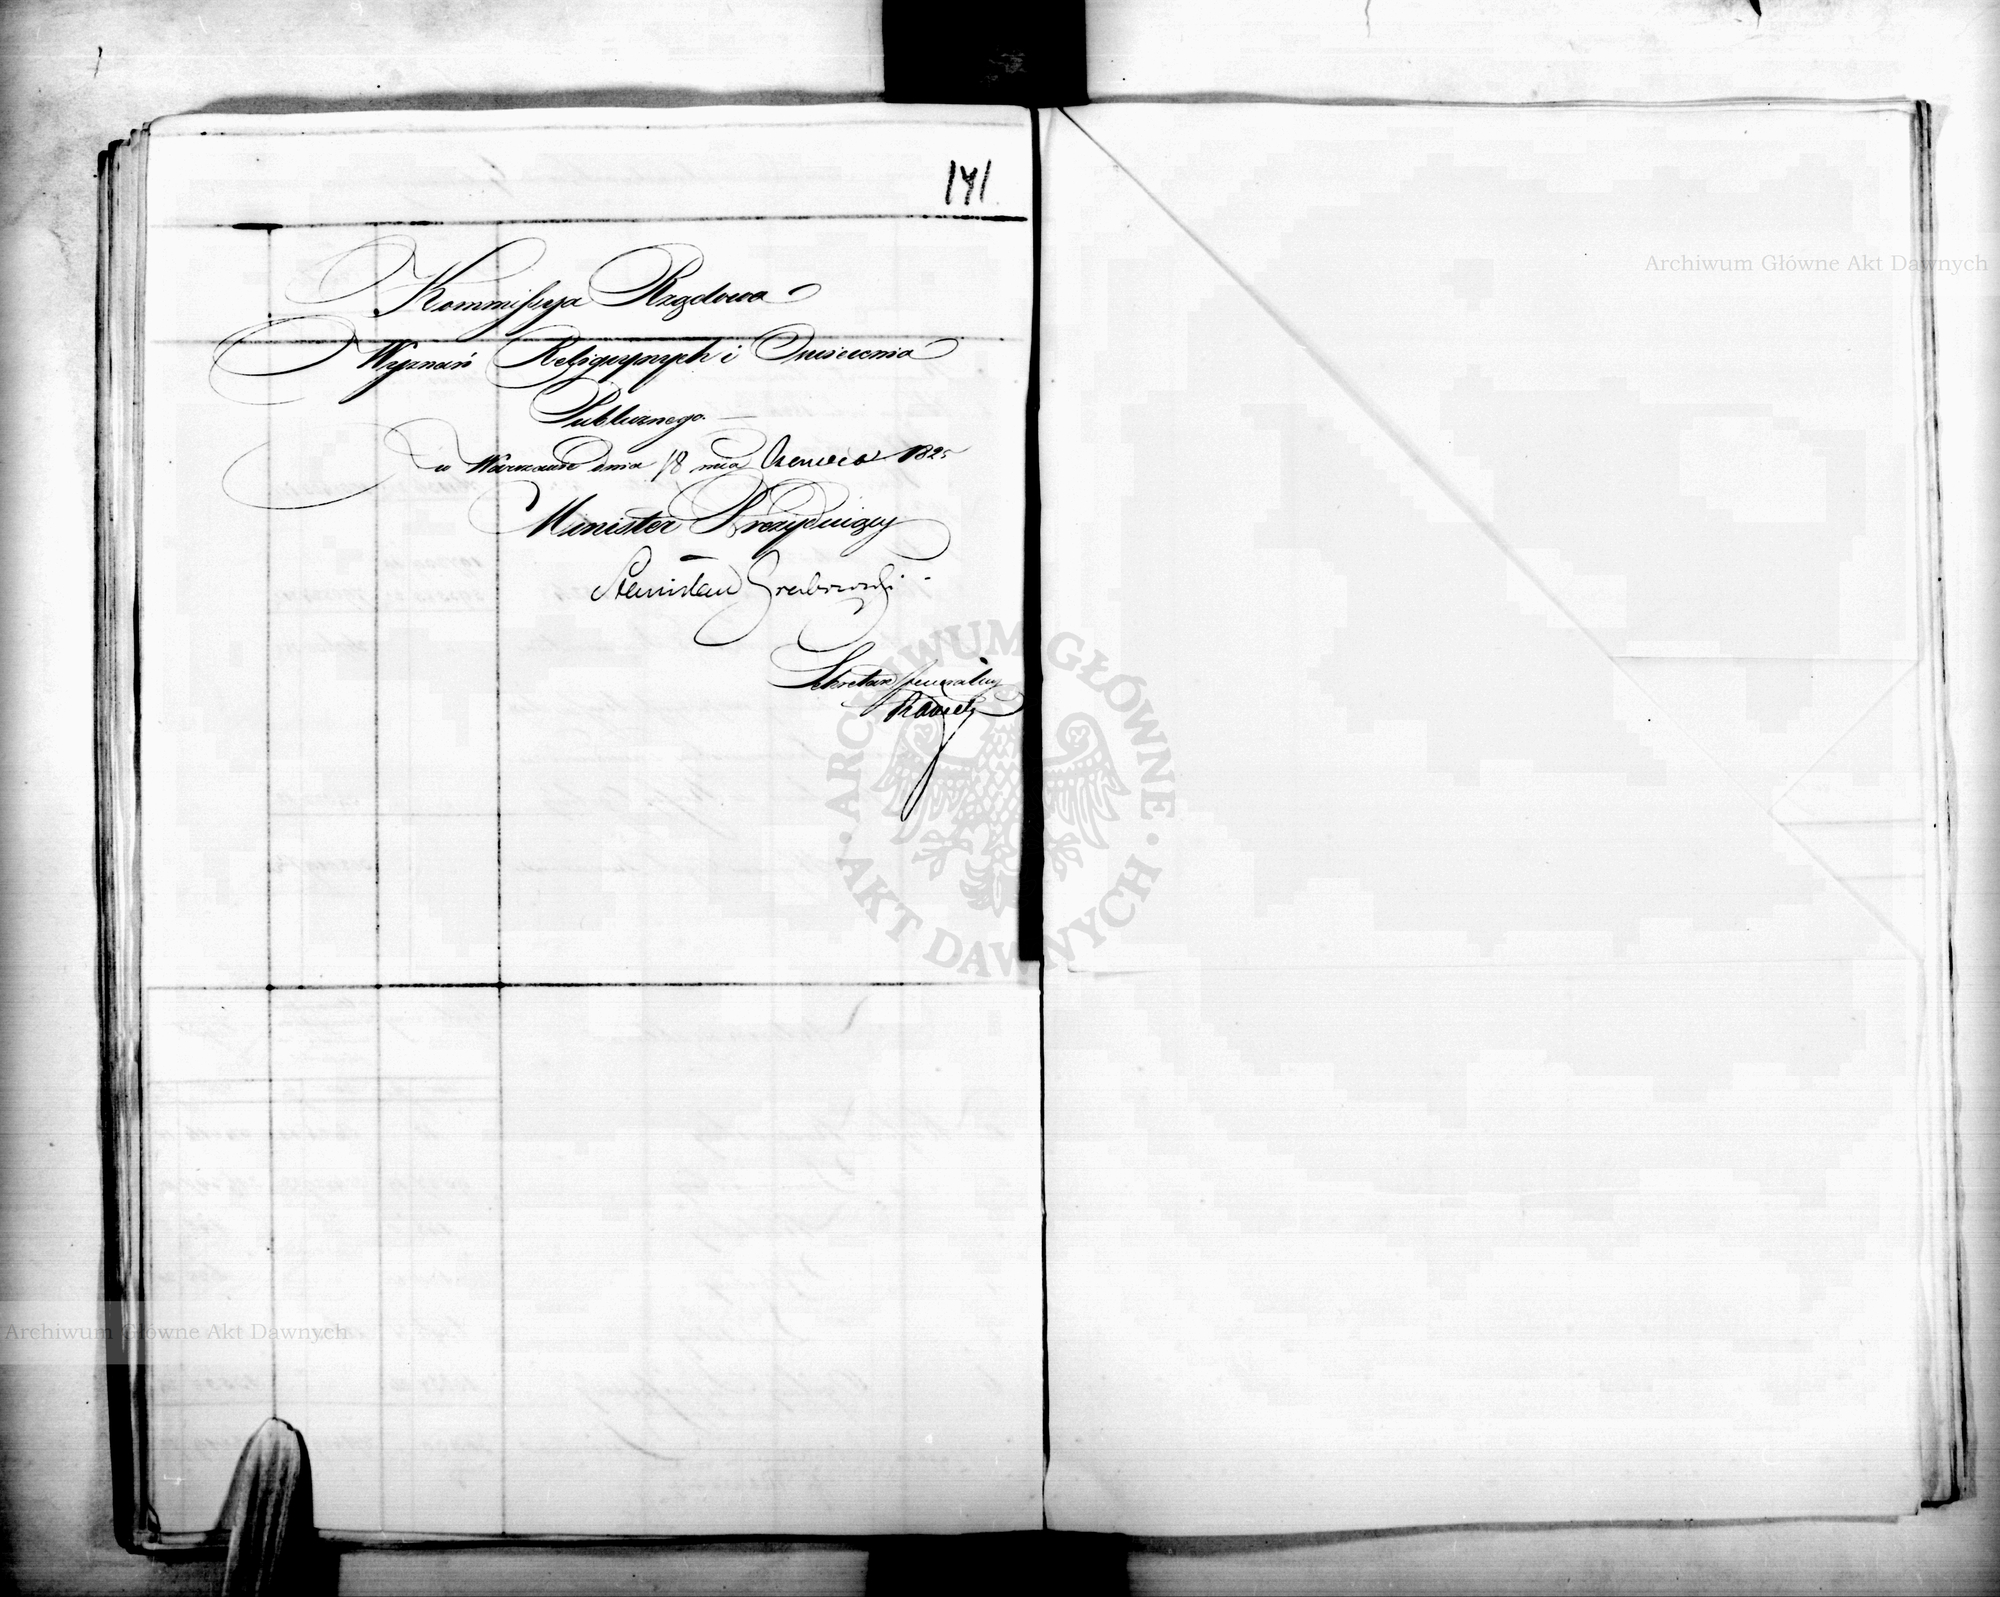 141
Kommissya Rządowa
Wyznań Religiynych i Oświecenia
Publicznego.
w Warszawie dnia 18 mca Czerwca 1825
Minister Prezyduiący
Stanisław Grabowski
Sekretarz Jeneralny
Archiwum Główne Akt Dawnych
ARCHIWUM GŁÓWNE AKT DAWNYCH
Archiwum Główne Akt Dawnych